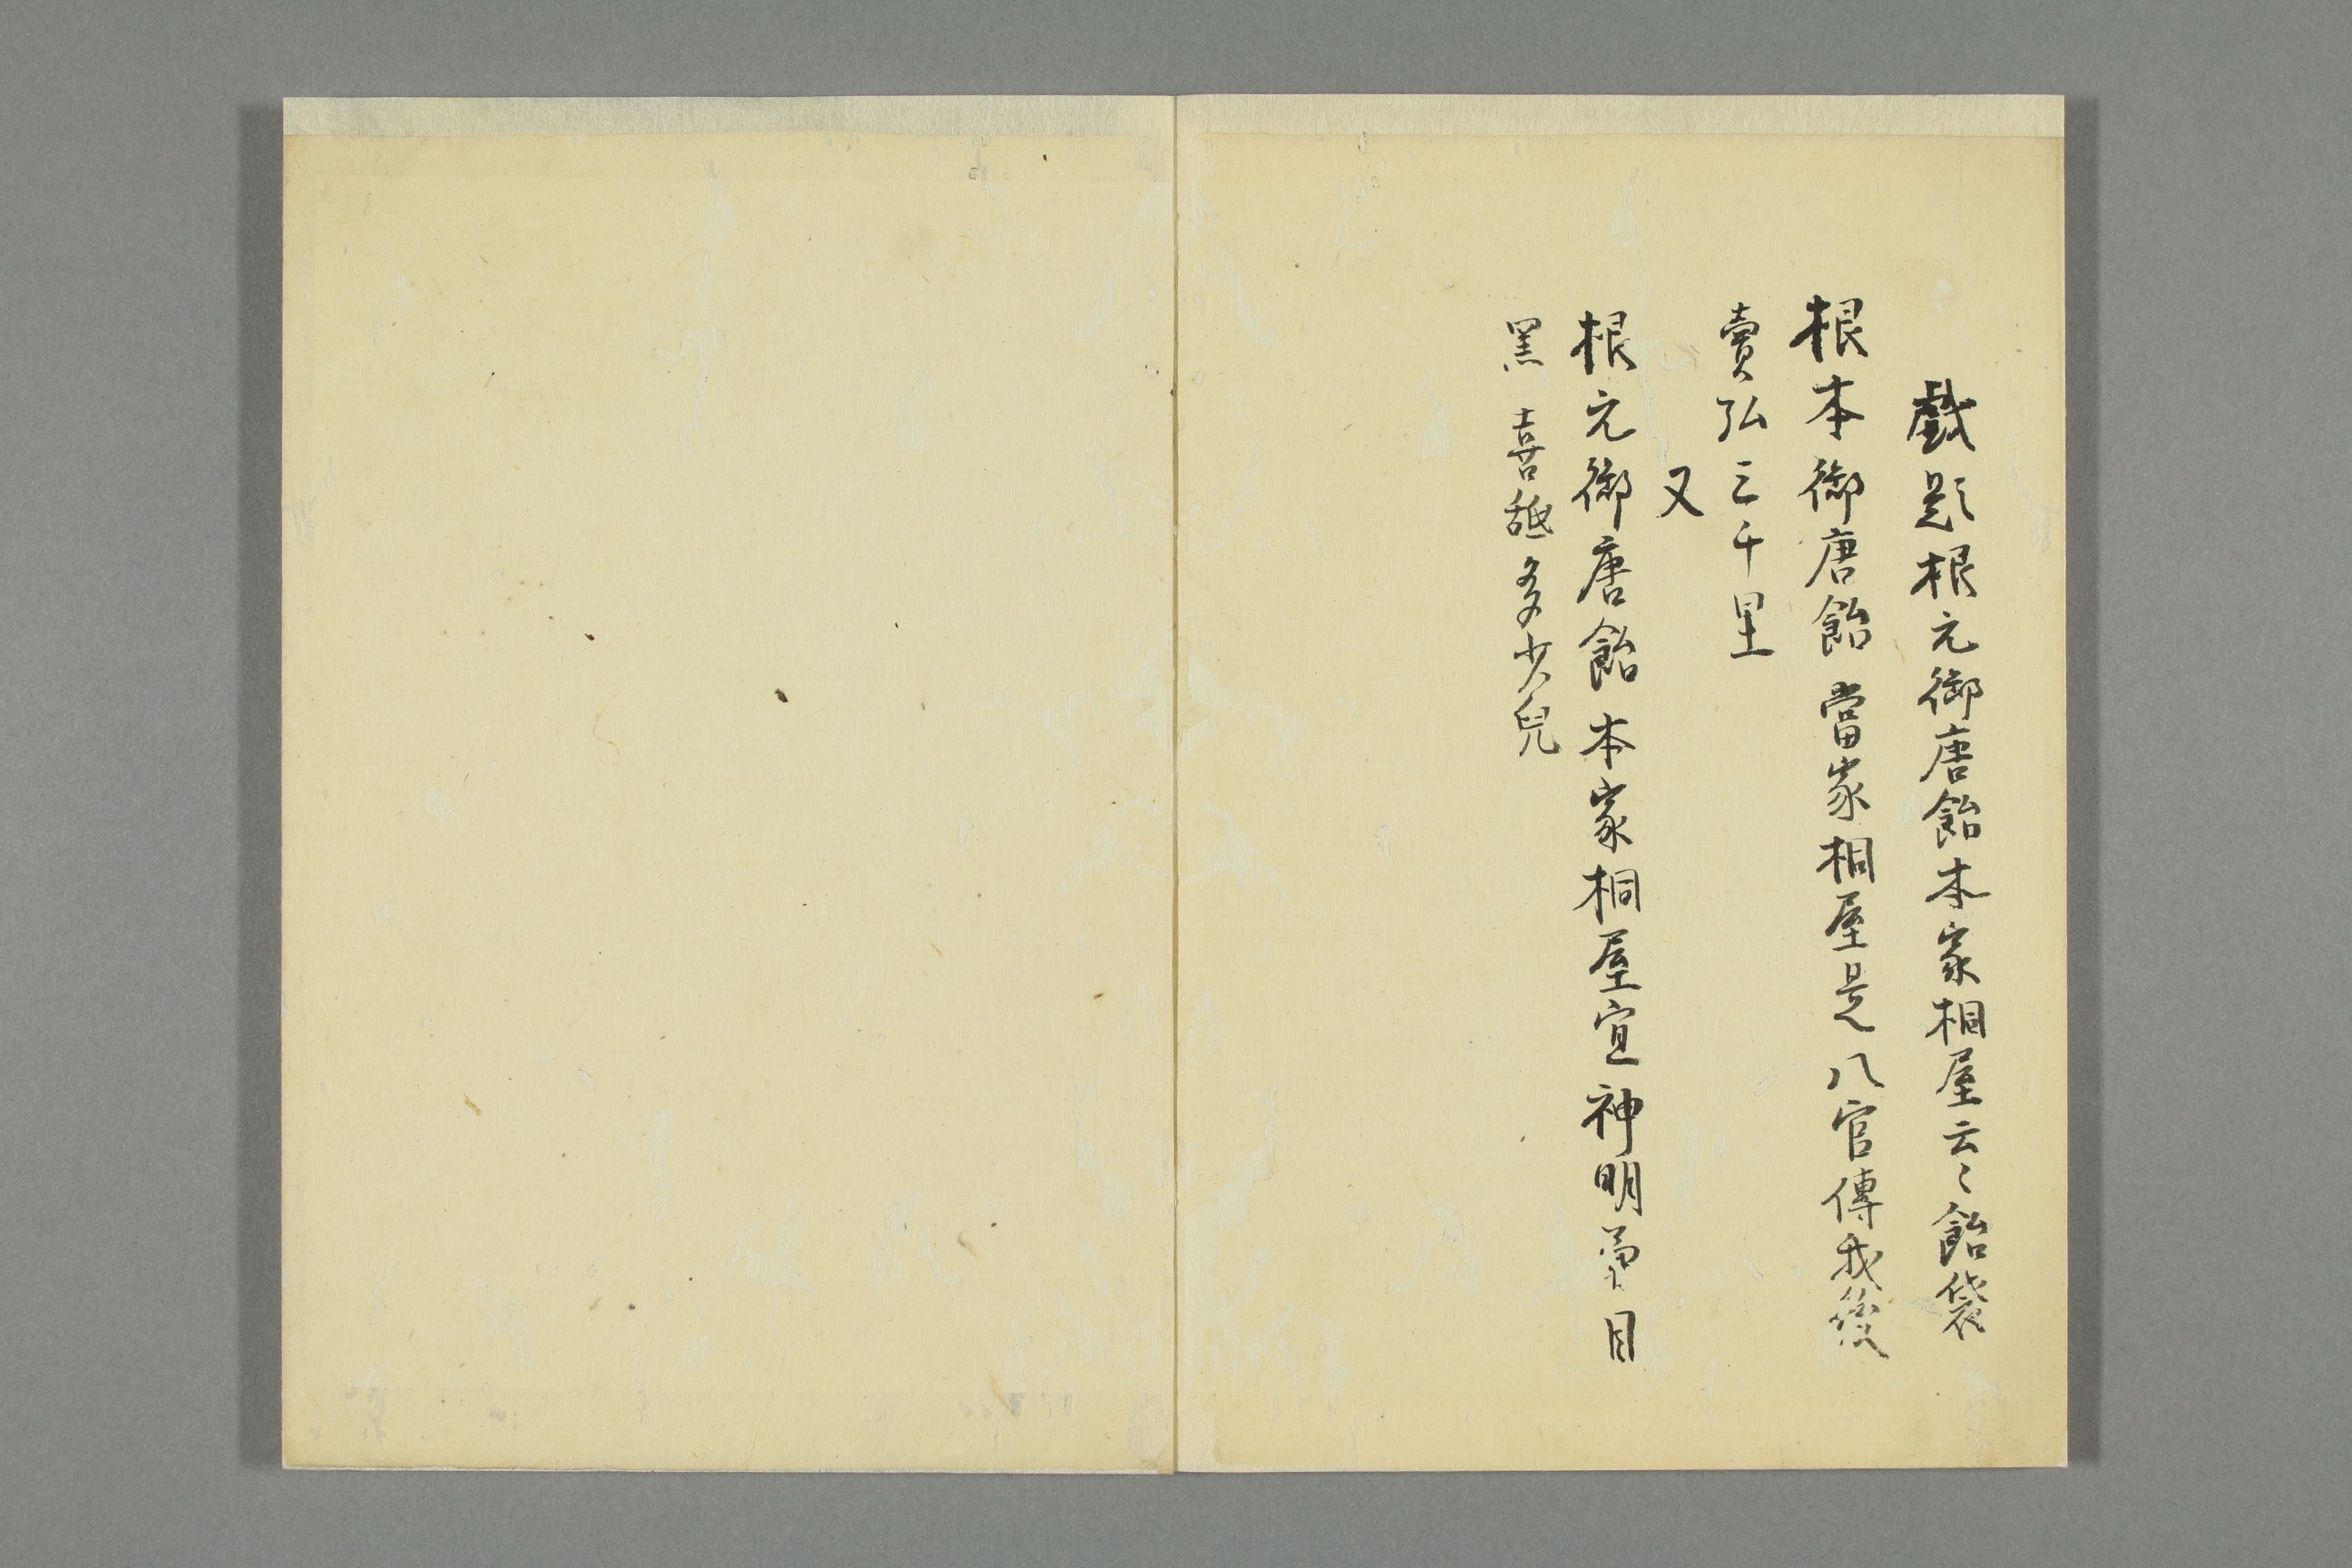 戯題根元御唐飴本家桐屋云々飴袋
根本御唐飴當家桐屋是八官傳我後
賣弘三千里
又
根元御唐飴本家桐屋宜神明前目
黒喜舐多少兒